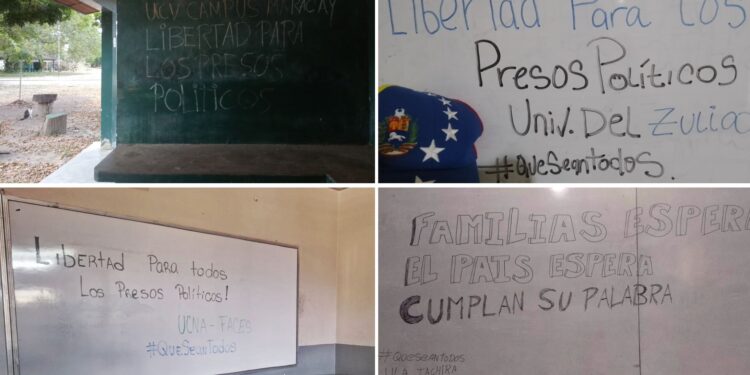 UCV CAMPUS MARACAY
LIBERTAD PARA
LOS PRESOS
POLITICOS
Libertad Para Los
Presos Políticos
Univ. Del Zulia
#QueSeanTodos.
Libertad Para todos
Los Presos Políticos!
UCNA - FACES
#QueSeanTodos
FAMILIAS ESPERA
EL PAIS ESPERA
CUMPLAN SU PALABRA
#QUESEANTODOS
ULA TACHIRA